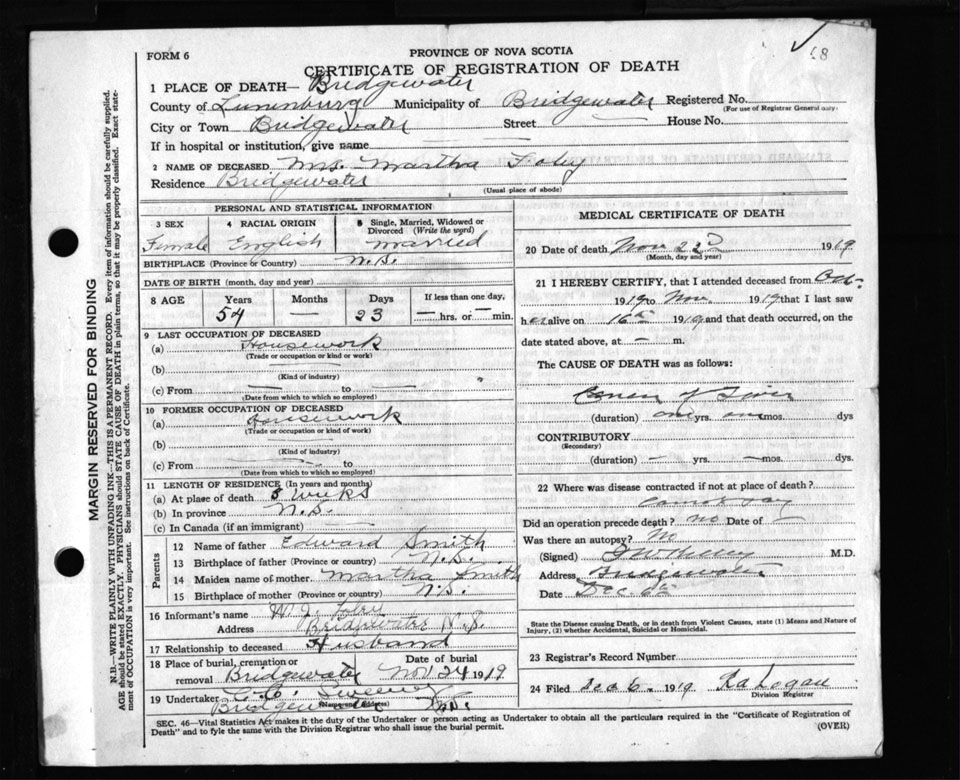 68
PROVINCE OF NOVA SCOTIA
FORM 6
CERTIFICATE OF REGISTRATION OF DEATH
1 PLACE OF DEATH— Bridgewater
County of Lunenburg Municipality of Bridgewater Registered No.
(For use of Registrar General only)
City or Town Bridgewater Street — House No.
If in hospital or institution, give name —
2 NAME OF DECEASED Mrs. Martha Foley
Residence Bridgewater
(Usual place of abode)
PERSONAL AND STATISTICAL INFORMATION
3 SEX 4 RACIAL ORIGIN 5 Single, Married, Widowed or Divorced (Write the word)
Female English Married
BIRTHPLACE (Province or Country) N.S.
DATE OF BIRTH (month, day and year)
8 AGE Years Months Days If less than one day,
54 — 23 — hrs. or — min.
9 LAST OCCUPATION OF DECEASED
(a) Housework
(Trade or occupation or kind or work)
(b)
(Kind of industry)
(c) From — to —
(Date from which to which so employed)
10 FORMER OCCUPATION OF DECEASED
(a) Housework
(Trade or occupation or kind of work)
(b) —
(Kind of industry)
(c) From — to
(Date from which to which so employed)
11 LENGTH OF RESIDENCE (In years and months)
(a) At place of death 5 Weeks
(b) In province N.S.
(c) In Canada (if an immigrant) —
Parents
12 Name of father Edward Smith
13 Birthplace of father (Province or country) N.S.
14 Maiden name of mother Martha Smith
15 Birthplace of mother (Province or country) N.S.
16 Informant's name W J. Foley
Address Bridgewater N.S.
17 Relationship to deceased Husband
18 Place of burial, cremation or removal Bridgewater Date of burial Nov 24 1919
19 Undertaker
(Name and Address)
Bridgewater N.S.
MEDICAL CERTIFICATE OF DEATH
20 Date of death Nov 22d 1919
(Month, day and year)
21 I HEREBY CERTIFY, that I attended deceased from Oct.
1919 to Nov 1919 that I last saw
her alive on 16th 1919 and that death occurred, on the
date stated above, at — m.
The CAUSE OF DEATH was as follows:
Cancer of Liver
(duration) one yrs. mos. dys
CONTRIBUTORY
(Secondary)
(duration) — yrs. — mos. dys.
22 Where was disease contracted if not at place of death?
Cannot say
Did an operation precede death? no Date of —
Was there an autopsy? No
(Signed) M.D.
Address Bridgewater
Date Dec 6th
State the Disease causing Death, or in Death from Violent Causes, state (1) Means and Nature of
Injury, (2) whether Accidental, Suicidal or Homicidal.
23 Registrar's Record Number
24 Filed Dec 6. 1919 Logan
Division Registrar
SEC. 46—Vital Statistics Act makes it the duty of the Undertaker or person acting as Undertaker to obtain all the particulars required in the "Certificate of Registration of
Death" and to fyle the same with the Division Registrar who shall issue the burial permit. (OVER)
MARGIN RESERVED FOR BINDING
N.B.—WRITE PLAINLY WITH UNFADING INK—THIS IS A PERMANENT RECORD. Every item of information should be carefully supplied.
AGE should be stated EXACTLY. PHYSICIANS should STATE CAUSE OF DEATH in plain terms, so that it may be properly classified. Exact state-
ment of OCCUPATION is very important. See instructions on back of Certificate.